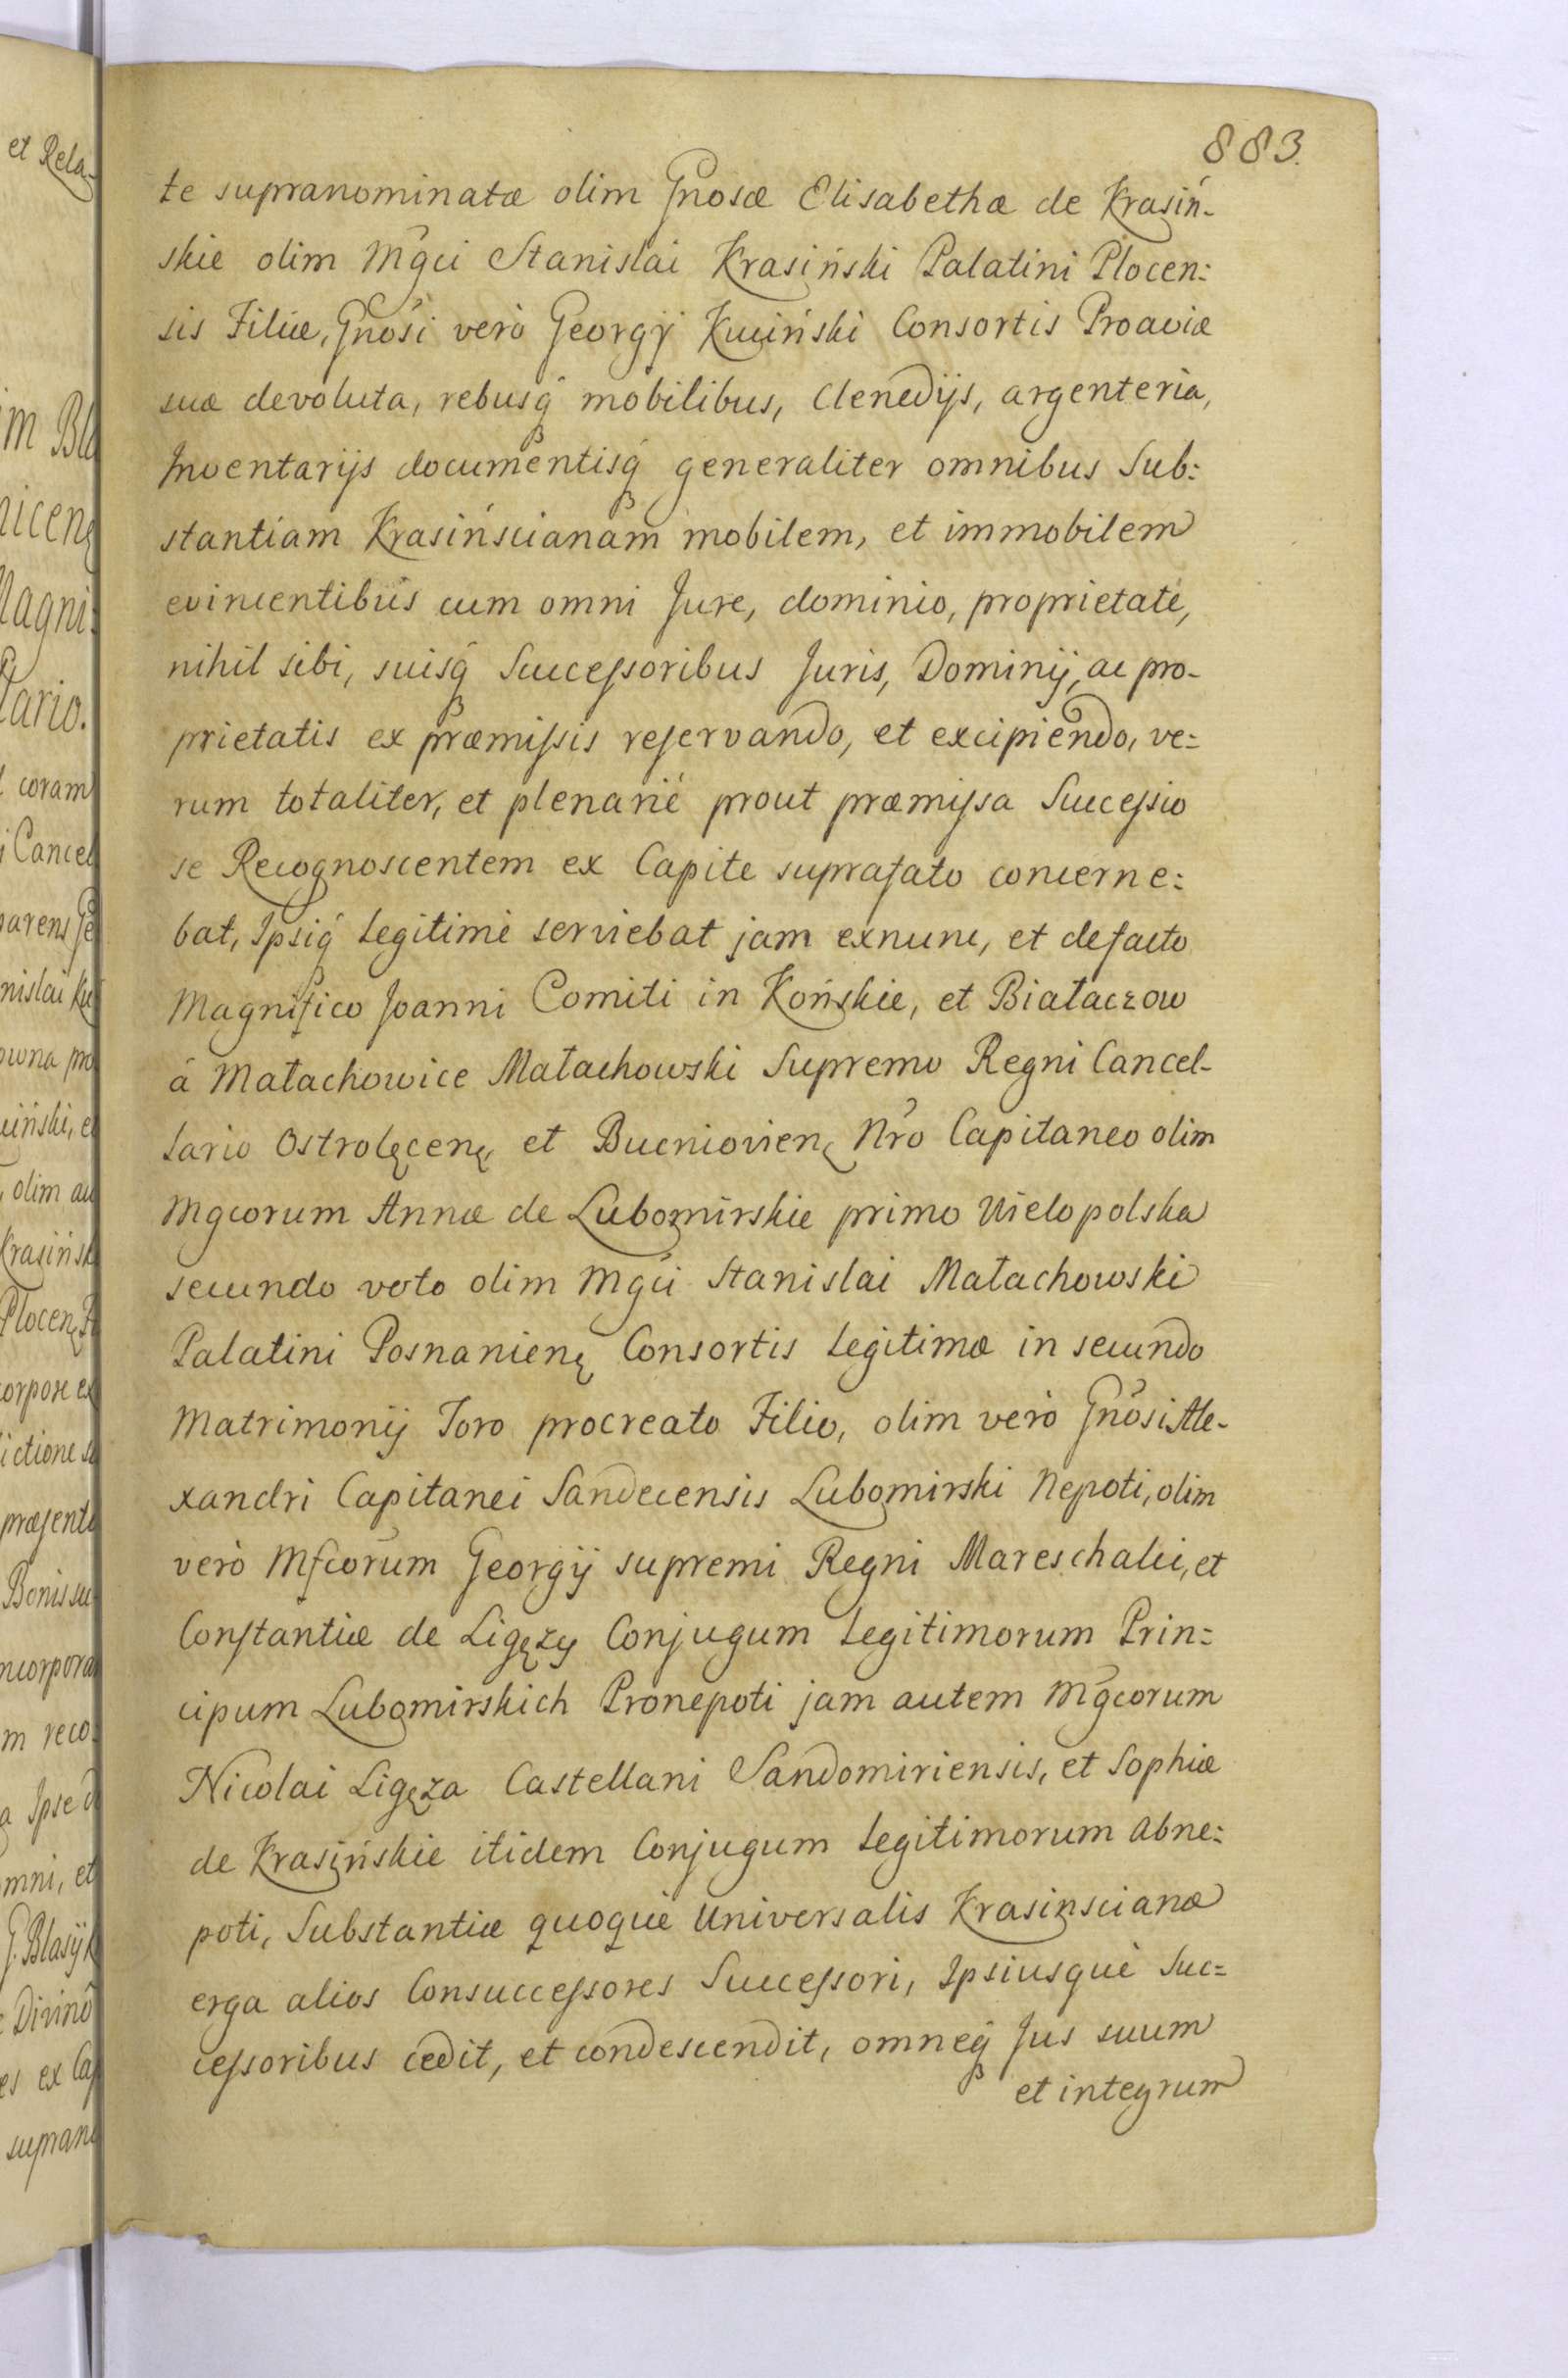 883.
te supranominatæ olim Gnosæ Elisabethæ de Krasiń-
skie olim Mgci Stanislai Krasiński Palatini Plocen:
sis Filiæ, Gnosi verò Georgÿ Kuciński Consortis Proaviæ
suæ devoluta, rebusq́ mobilibus, Clenedÿs, argenteria,
Inventarÿs documentisq́ generaliter omnibus Sub:
stantiam Krasińscianam mobilem, et immobilem
evincentibus cum omni Jure, dominio, proprietate,
nihil sibi, suisq́ Successoribus Juris, Dominÿ, ac pro-
prietatis ex præmissis reservando, et excipiendo, ve:
rum totaliter, et plenariè prout præmissa Successio
se Recognoscentem ex Capite suprafato concerne:
bat, Ipsiq́ legitimè serviebat jam exnunc, et defacto
Magnifico Joanni Comiti in Końskie, et Białaczow
á Małachowice Małachowski Supremo Regni Cancel-
lario Ostrolęcenę et Bucniovienę Nro Capitaneo olim
Mgcorum Annæ de Lubomirskie primo Wielopolska
secundo voto olim Mgci Stanislai Małachowski
Palatini Posnanienę Consortis legitimæ in secundo
Matrimonÿ Toro procreato Filio, olim verò Gnosi Ale-
xandri Capitanei Sandecensis Lubomirski Nepoti, olim
verò Mfcorum Georgÿ supremi Regni Mareschalci, et
Constantiæ de Ligęzy Conjugum legitimorum Prin:
cipum Lubomirskich Pronepoti jam autem Mgcorum
Nicolai Ligęza Castellani Sandomiriensis, et Sophiæ
de Krasińskie itidem Conjugum legitimorum abne:
poti, Substantiæ quoque Universalis Krasinscianæ
erga alios Consuccessores Successori, Ipsiusquè Suc:
cessoribus cedit, et condescendit, omneq́ Jus suum
et integrum